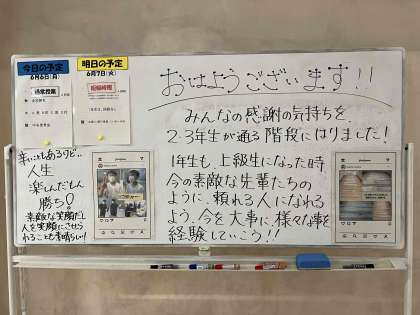 今日の予定
6月6日(月)
通常授業
明日の予定
6月7日(火)
短縮時程
おはようございます!!
みんなの感謝の気持ちを
2.3年生が通る階段にはりました!
1年生も、上級生になった時
今の素敵な先輩たちの
ように、頼れる人になれる
よう、今を大事に、様々な事を
経験していこう!!
辛いこともあるけど…
人生
楽しんだもん
勝ち!
素敵な笑顔だし
人を笑顔にさせら
れることも素晴らしい!